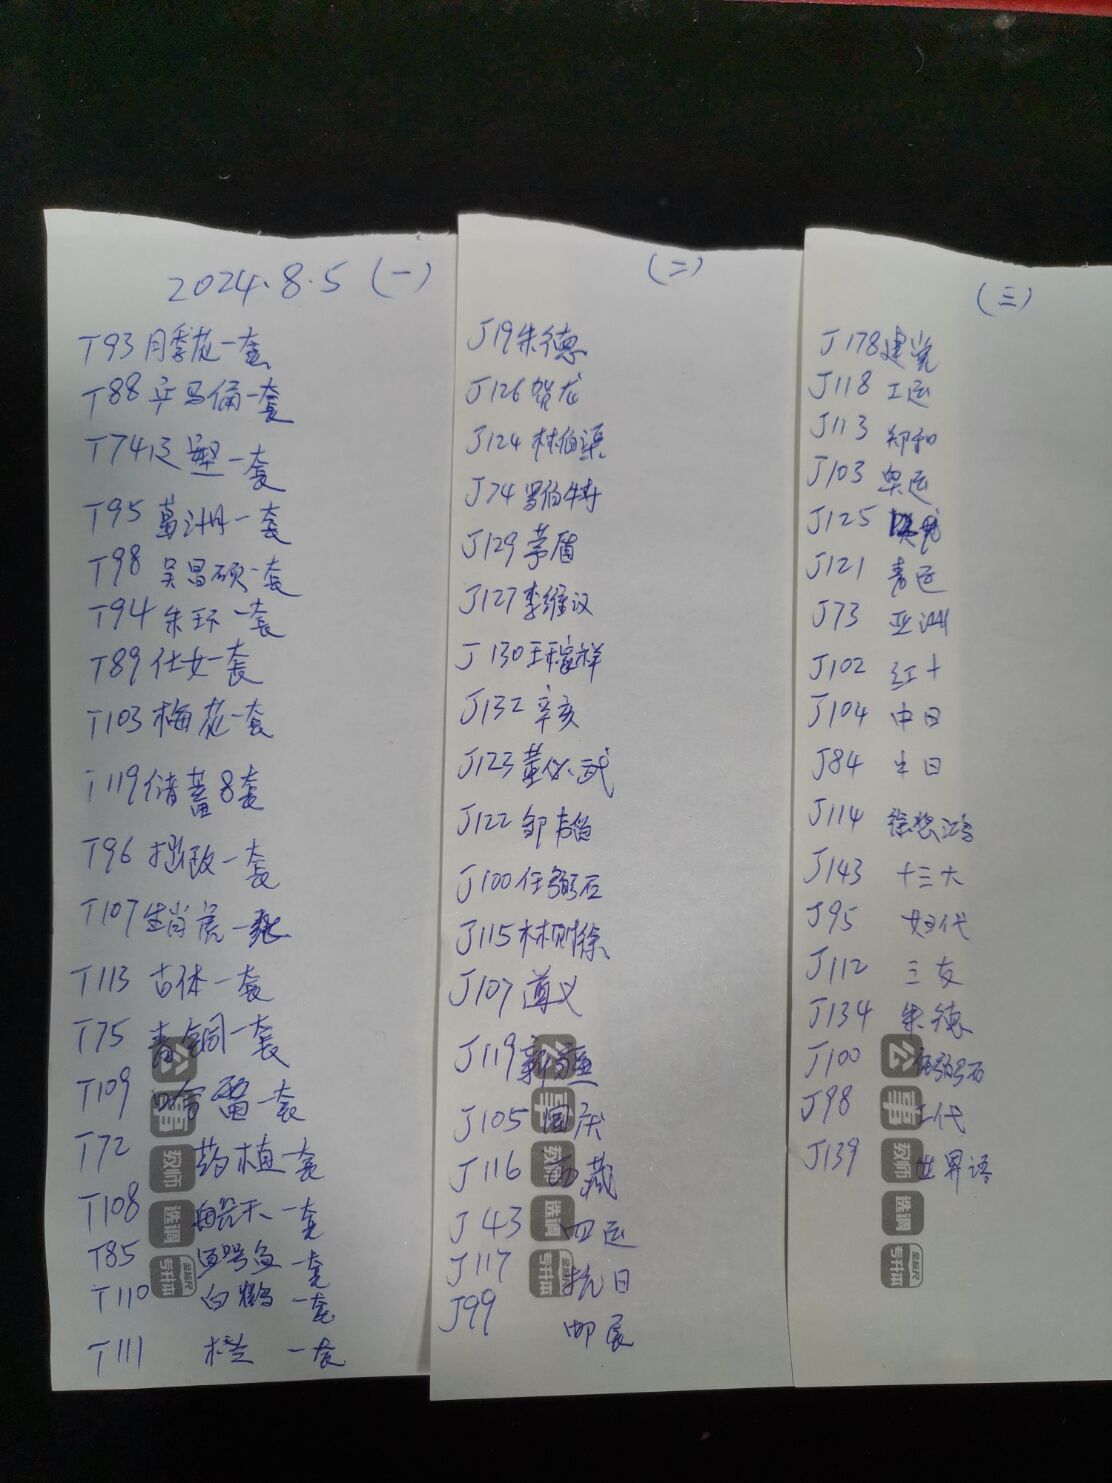 2024.8.5 (一)
T93 月季花一套
T88 兵马俑一套
T74 辽塑一套
T95 葛洲一套
T98 吴昌硕一套
T94 朱环一套
T89 仕女一套
T103 梅花一套
T119 储蓄8套
T96 拙政一套
T107 生肖虎一张
T113 古体一套
T75 青铜一套
T109 哈雷一套
T72 药植一套
T108 航天一套
T85 一套
T110 白鹤一套
T111 一套
(二)
J19 朱德
J126 贺龙
J124 林伯渠
J74 罗伯特
J129 茅盾
J127 李维汉
J130 王稼祥
J132 辛亥
J123 董必武
J122 邹韬
J100 任弼石
J115 林则徐
J107 遵义
J119 新疆
J105 国庆
J116 西藏
J43 四运
J117 抗日
J99 邮展
(三)
J178 建党
J118 工运
J113 郑和
J103 奥运
J125
J121 青运
J73 亚洲
J102 红十
J104 中日
J84 生日
J114 徐悲鸿
J143 十三大
J95 妇代
J112 三友
J134 朱德
J100 任弼石
J98 工代
J139 世界语
公
事
教师
选调
专升本
公
事
教师
选调
专升本
公
事
教师
选调
专升本